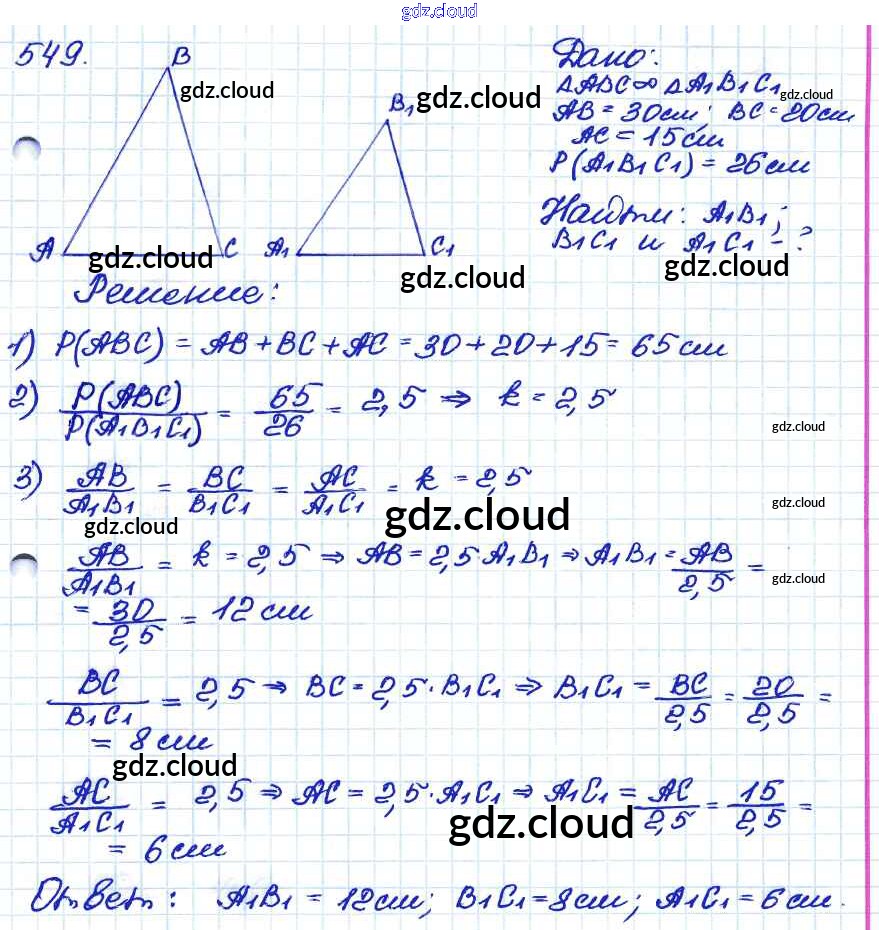 gdz.cloud
549.
B
gdz.cloud
B₁ gdz.cloud
A
C
A₁
C₁
gdz.cloud
gdz.cloud
Дано:
△ABC ∞ △A₁B₁C₁ gdz.cloud
AB = 30см; BC = 20см
AC = 15см
P(A₁B₁C₁) = 26см
Найти: A₁B₁;
B₁C₁ и A₁C₁ - ?
gdz.cloud
Решение:
1) P(ABC) = AB + BC + AC = 30 + 20 + 15 = 65 см
2) P(ABC)/P(A₁B₁C₁) = 65/26 = 2,5 ⇒ k = 2,5
gdz.cloud
3) AB/A₁B₁ = BC/B₁C₁ = AC/A₁C₁ = k = 2,5
gdz.cloud
gdz.cloud
gdz.cloud
AB/A₁B₁ = k = 2,5 ⇒ AB = 2,5·A₁B₁ ⇒ A₁B₁ = AB/2,5 =
gdz.cloud
= 30/2,5 = 12 см
BC/B₁C₁ = 2,5 ⇒ BC = 2,5·B₁C₁ ⇒ B₁C₁ = BC/2,5 = 20/2,5 =
= 8 см
gdz.cloud
AC/A₁C₁ = 2,5 ⇒ AC = 2,5·A₁C₁ ⇒ A₁C₁ = AC/2,5 = 15/2,5 =
gdz.cloud
= 6 см
Ответ: A₁B₁ = 12см; B₁C₁ = 8см; A₁C₁ = 6см.